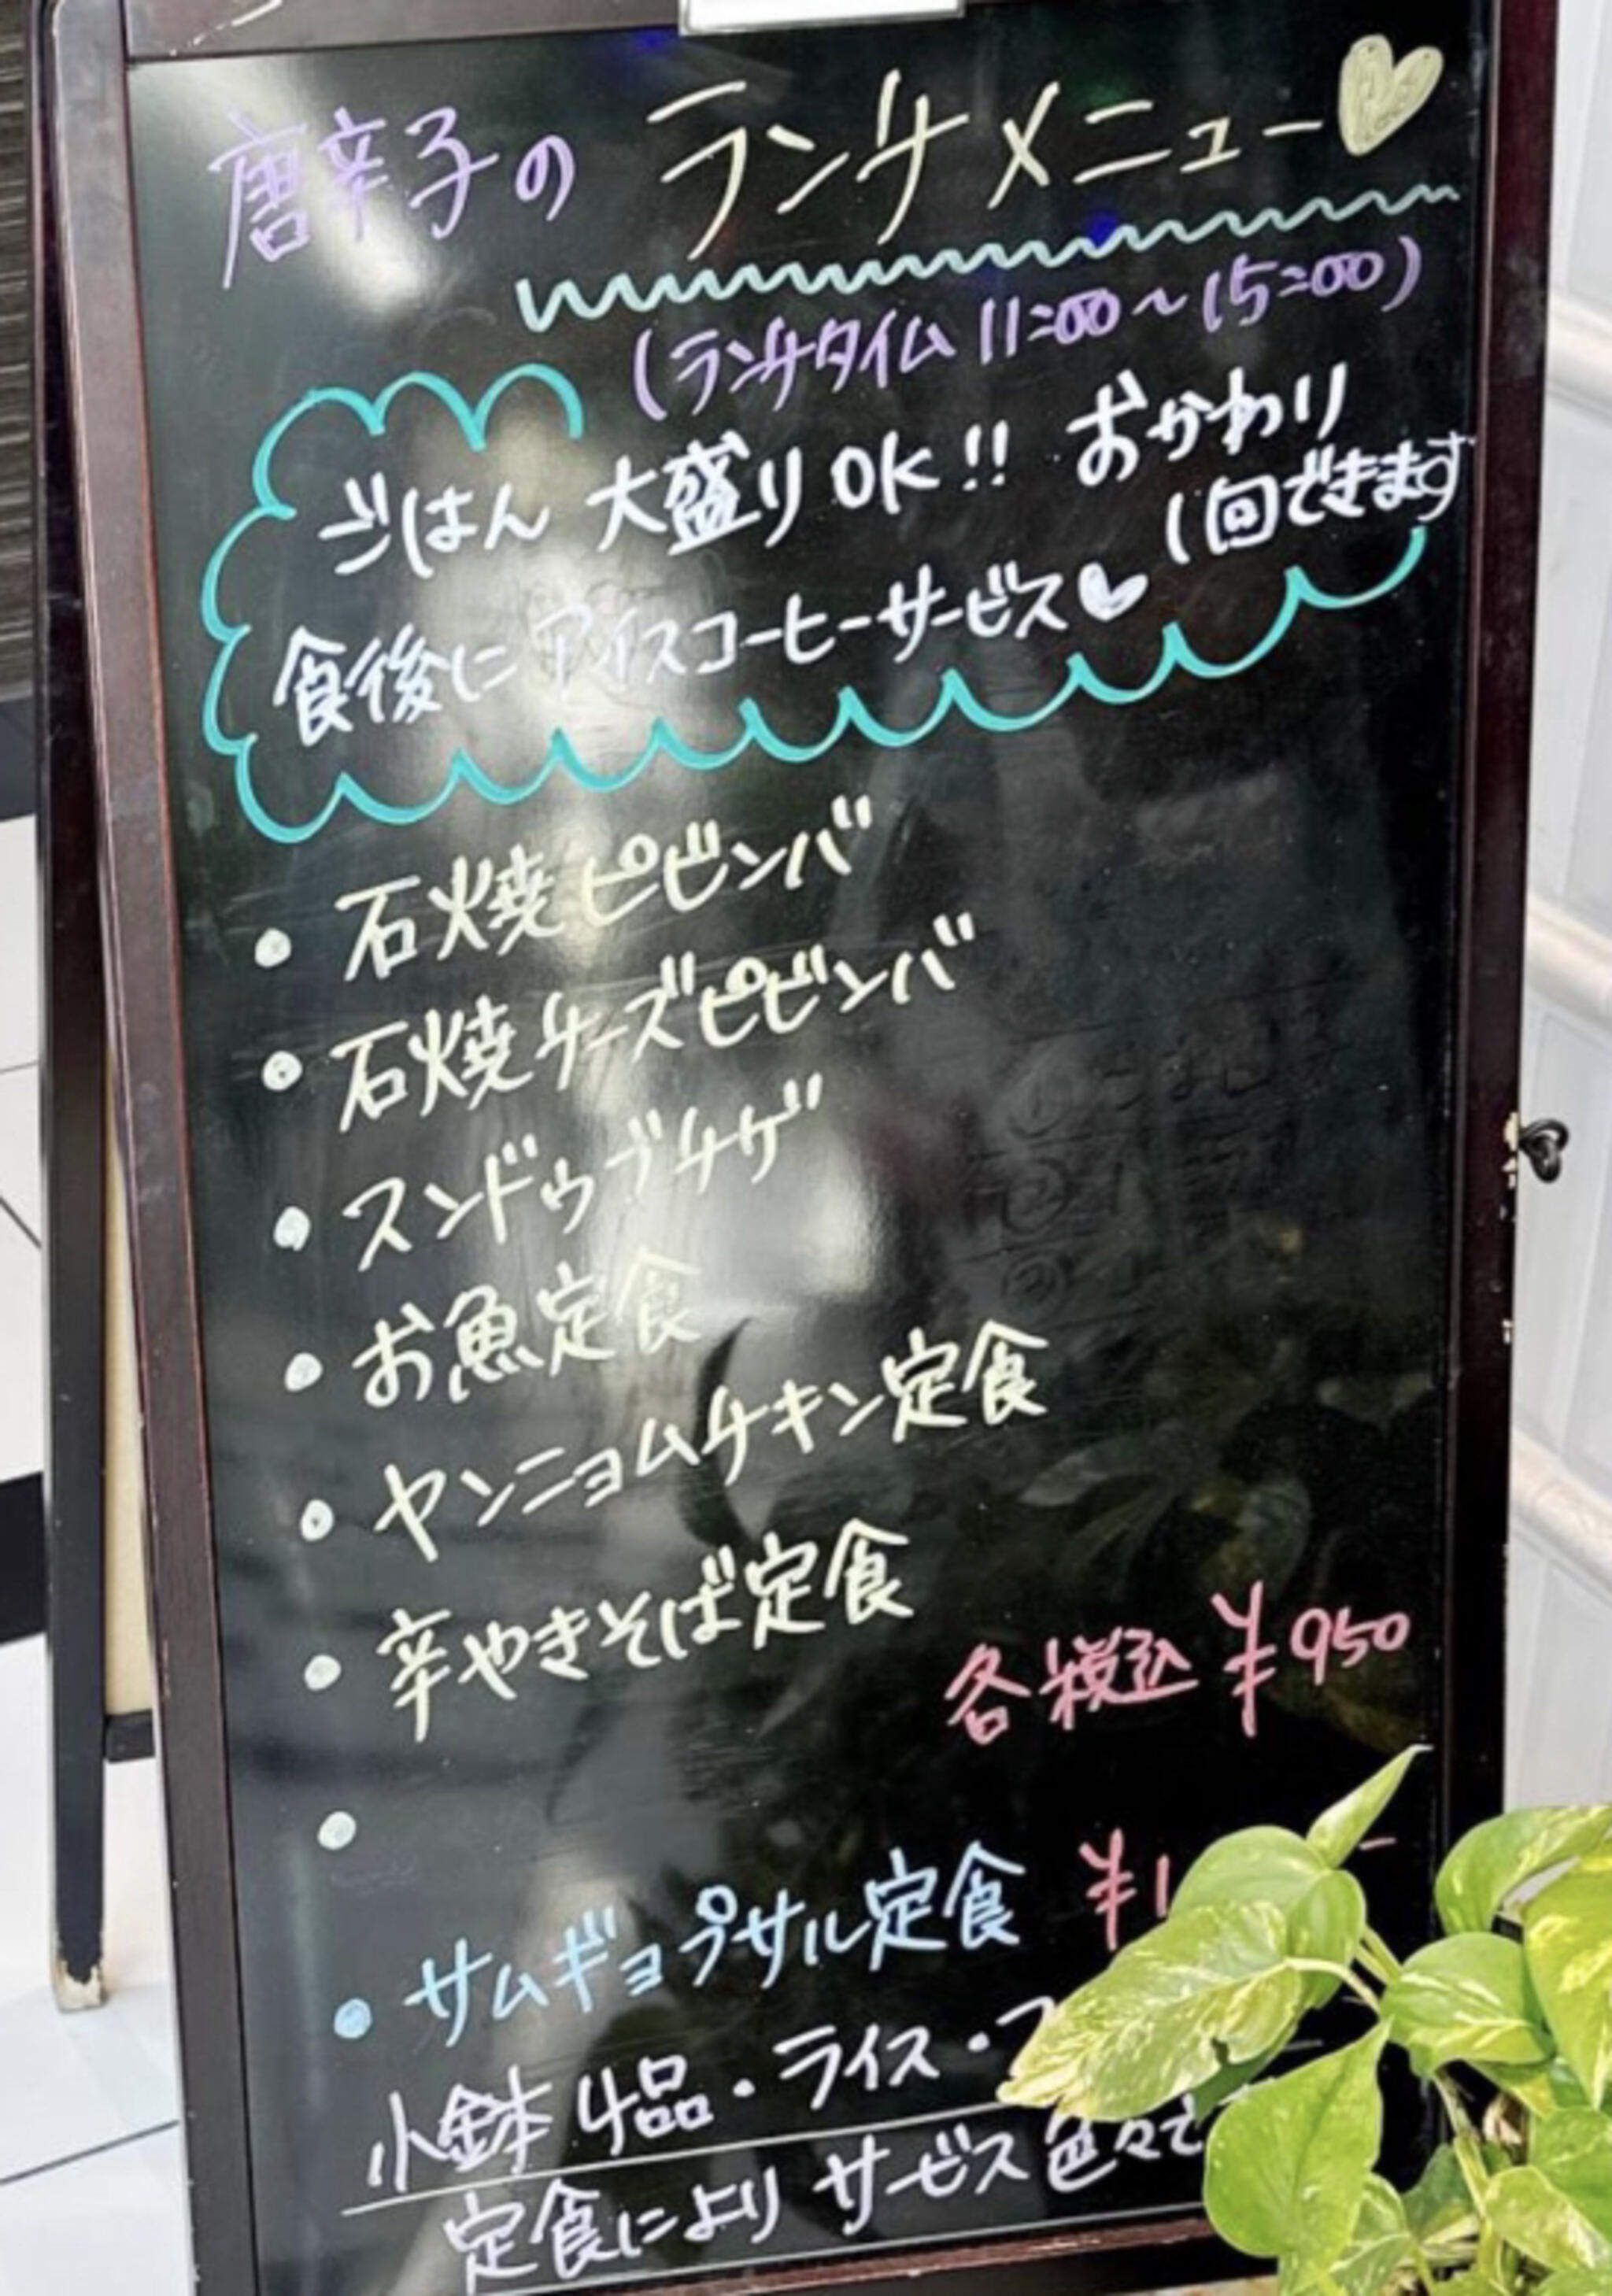 唐辛子の ランチメニュー
(ランチタイム 11:00〜15:00)
ごはん 大盛りOK!! おかわり
1回できます
食後にアイスコーヒーサービス
・石焼ピビンバ
・石焼チーズピビンバ
・スンドゥブチゲ
・お魚定食
・ヤンニョムチキン定食
・辛やきそば定食
各税込 ¥950
・
・サムギョプサル定食 ¥1
小鉢4品・ライス・
定食によりサービス色々